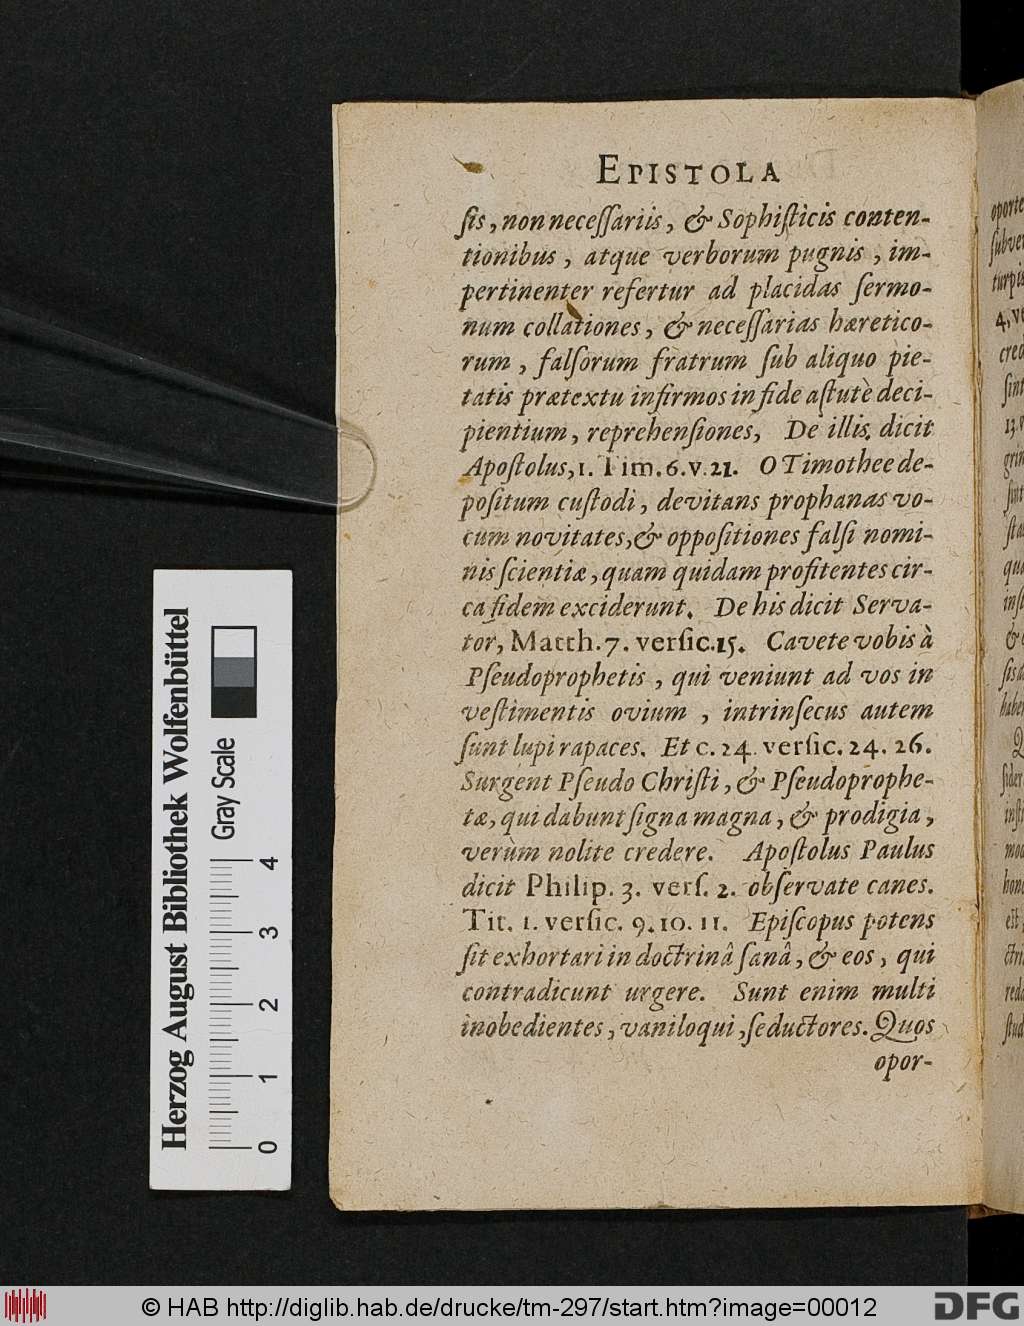 EPISTOLA
ſis, non neceſſariis, & Sophiſticis conten-
tionibus, atque verborum pugnis, im-
pertinenter refertur ad placidas ſermo-
num collationes, & neceſſarias hæretico-
rum, falſorum fratrum ſub aliquo pie-
tatis prætextu infirmos in fide aſtutè deci-
pientium, reprehenſiones, De illis dicit
Apoſtolus, 1. Tim. 6. v. 21. O Timothee de-
poſitum cuſtodi, devitans prophanas vo-
cum novitates, & oppoſitiones falſi nomi-
nis ſcientiæ, quam quidam profitentes cir-
ca fidem exciderunt. De his dicit Serva-
tor, Matth. 7. verſic. 15. Cavete vobis à
Pſeudoprophetis, qui veniunt ad vos in
veſtimentis ovium, intrinſecus autem
ſunt lupi rapaces. Et c. 24. verſic. 24. 26.
Surgent Pſeudo Chriſti, & Pſeudoprophe-
tæ, qui dabunt ſigna magna, & prodigia,
verùm nolite credere. Apoſtolus Paulus
dicit Philip. 3. verſ. 2. obſervate canes.
Tit. 1. verſic. 9. 10. 11. Epiſcopus potens
ſit exhortari in doctrinâ ſanâ, & eos, qui
contradicunt urgere. Sunt enim multi
inobedientes, vaniloqui, ſeductores. Quos
opor-
Herzog August Bibliothek Wolfenbüttel
Gray Scale
0 1 2 3 4
© HAB http://diglib.hab.de/drucke/tm-297/start.htm?image=00012
DFG